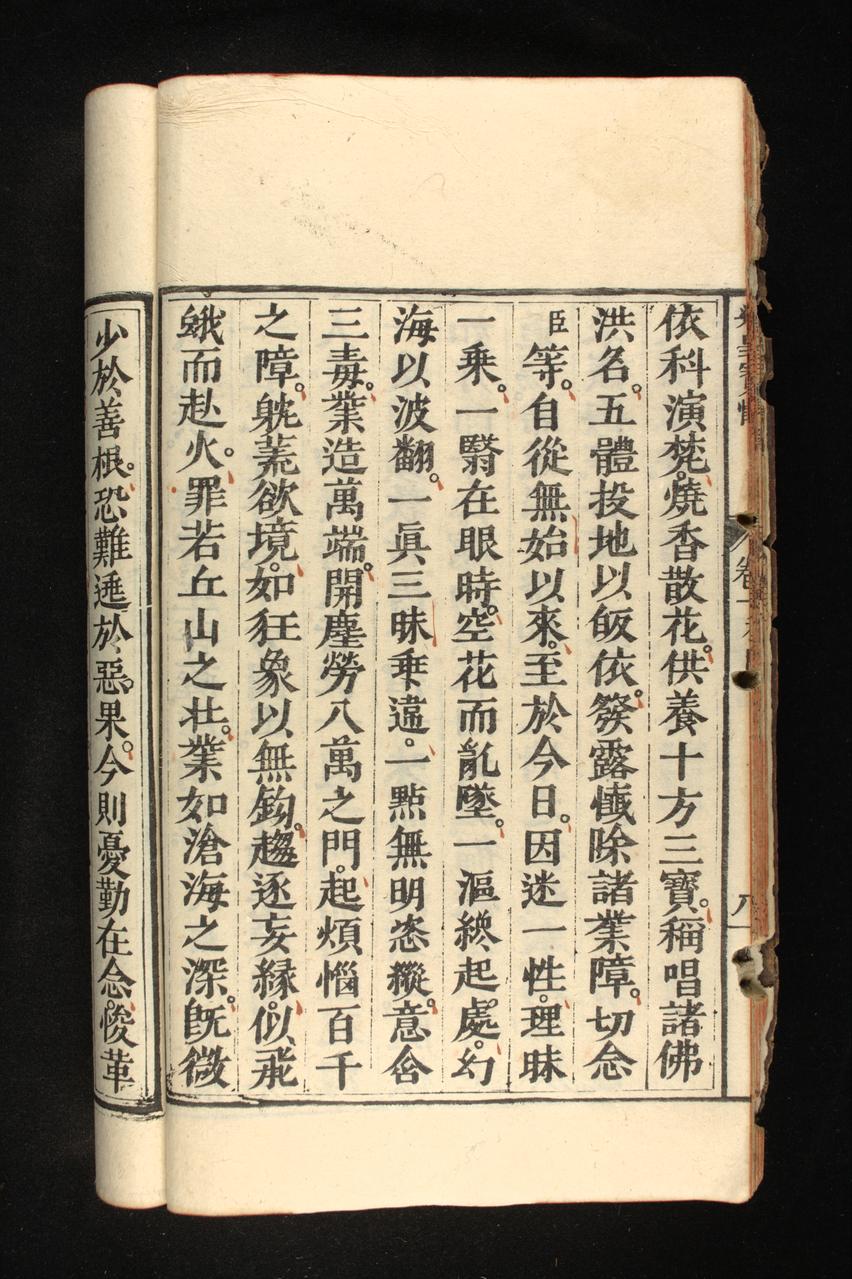 依科演梵。燒香散花。供養十方三寶。稱唱諸佛
洪名。五體投地以皈依。發露懺除諸業障。切念
臣等。自從無始以來。至於今日。因迷一性。理昧
一乘。一翳在眼時。空花而亂墜。一漚纔起處。幻
海以波翻。一眞三昧乖違。一點無明恣縱。意含
三毒。業造萬端。開塵勞八萬之門。起煩惱百千
之障。躭荒欲境。如狂象以無鈎。趨逐妄緣。似飛
蛾而赴火。罪若丘山之壯。業如滄海之深。旣微
少於善根。恐難逃於惡果。今則憂勤在念。悛革